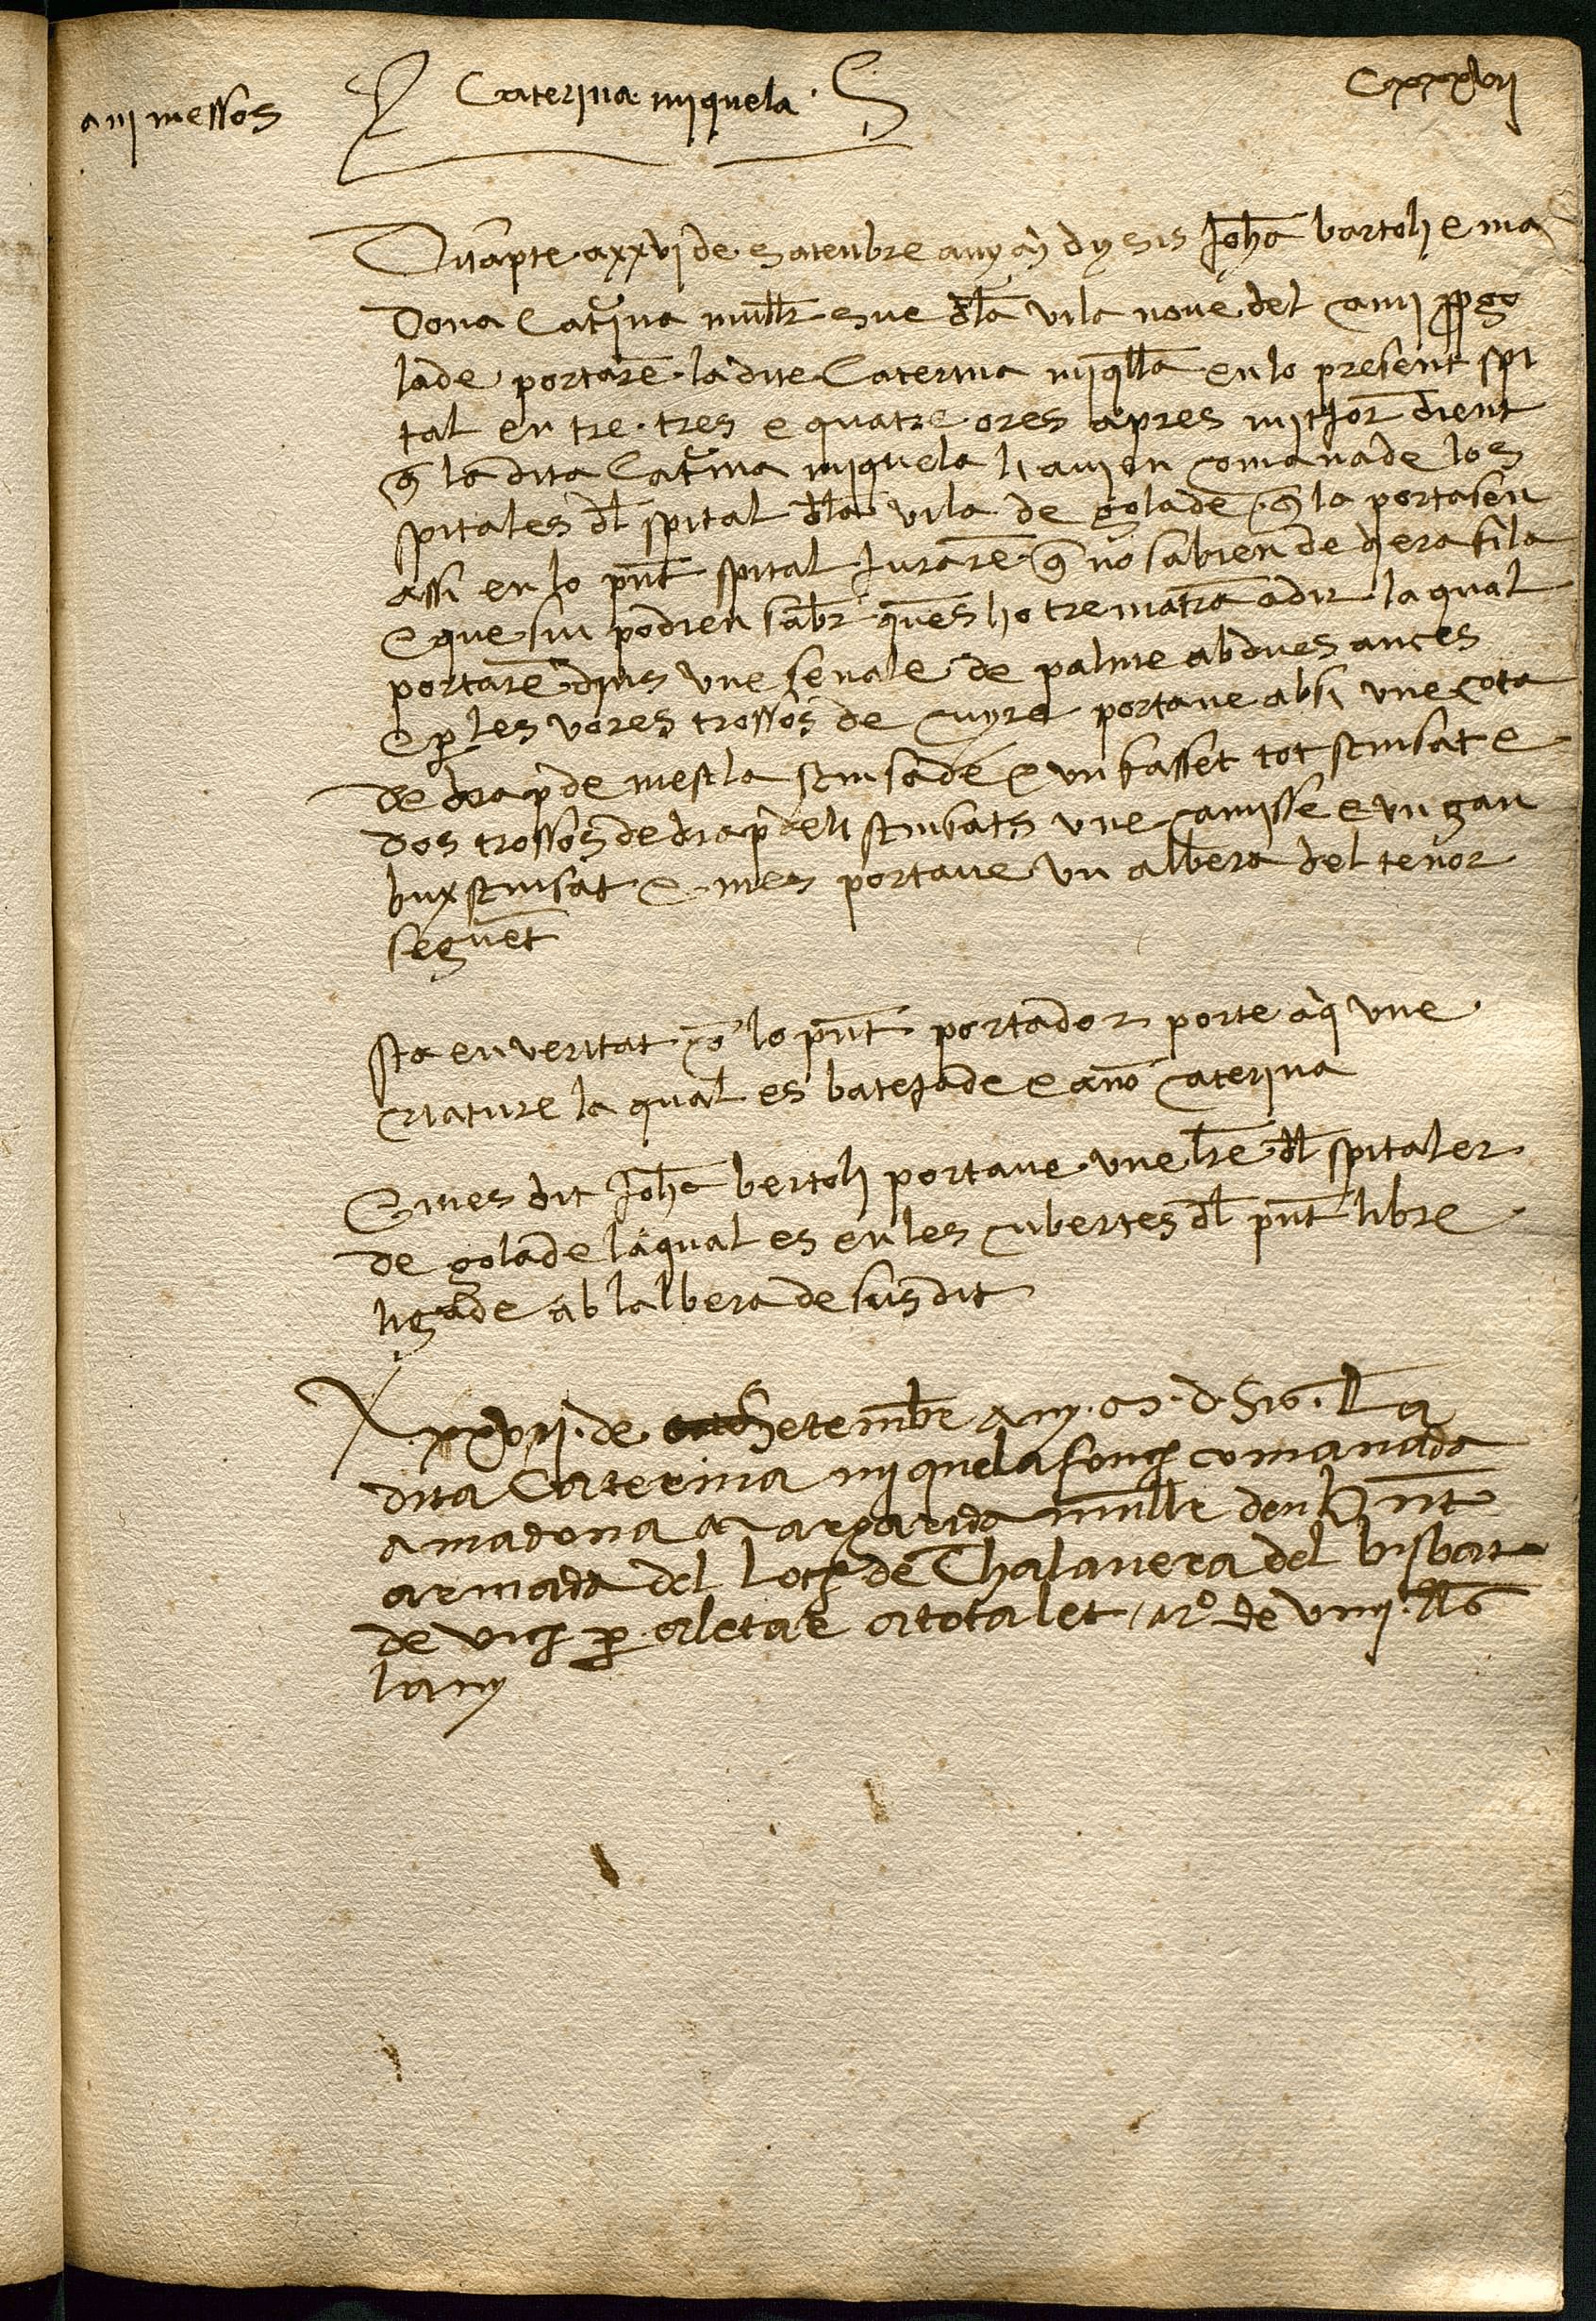 Cxxxvii
a iii messos
Caterina miquela
Diꞌapte a xxvi de satenbre any m d y sis Joha bartoli e ma
dona Catꞌina mullr sue dla vila nove del cami pp go
lade portarē la dite Caterina miqlla en lo present spi
tal entre tres e quatre ores apres mitjorn dient
q̄ la dita Catꞌina miquela li avien comanade los
spitales dl spital dla vila de golade q̄ la portasen
assi en lo pnt spital Jurarē q̄ no sabien de qi era fila
e que sin podien sabr ques ho trematrā a dir la qual
portarē dins une senale de palme ab dues ances
e p les vores trossos de cuyre portave ab si une cota
de drap de mescla squinsade e un fasset tot squinsat e
dos trossos de drap de li squinsats une camisse e un gan
bux squinsat e mes portave un albera del tenor
seguēt
sta en veritat cō lo pnt portador porte aq̄ une
criature la qual es batejade e a nō caterina
E mes dit Joha bertoli portave une lre dl spitaler
de golade la qual es en les cubertes dl pnt libre
ligade ab lalbera desusdit
A xxvii de Setembre any m d 516 La
dita Caterina miquela fonch comanada
a madona Margarida mullr den vinct
armada del loch de Thalavera del bisbat
de vich p aletar a tota let a rº de viiii ll
lany